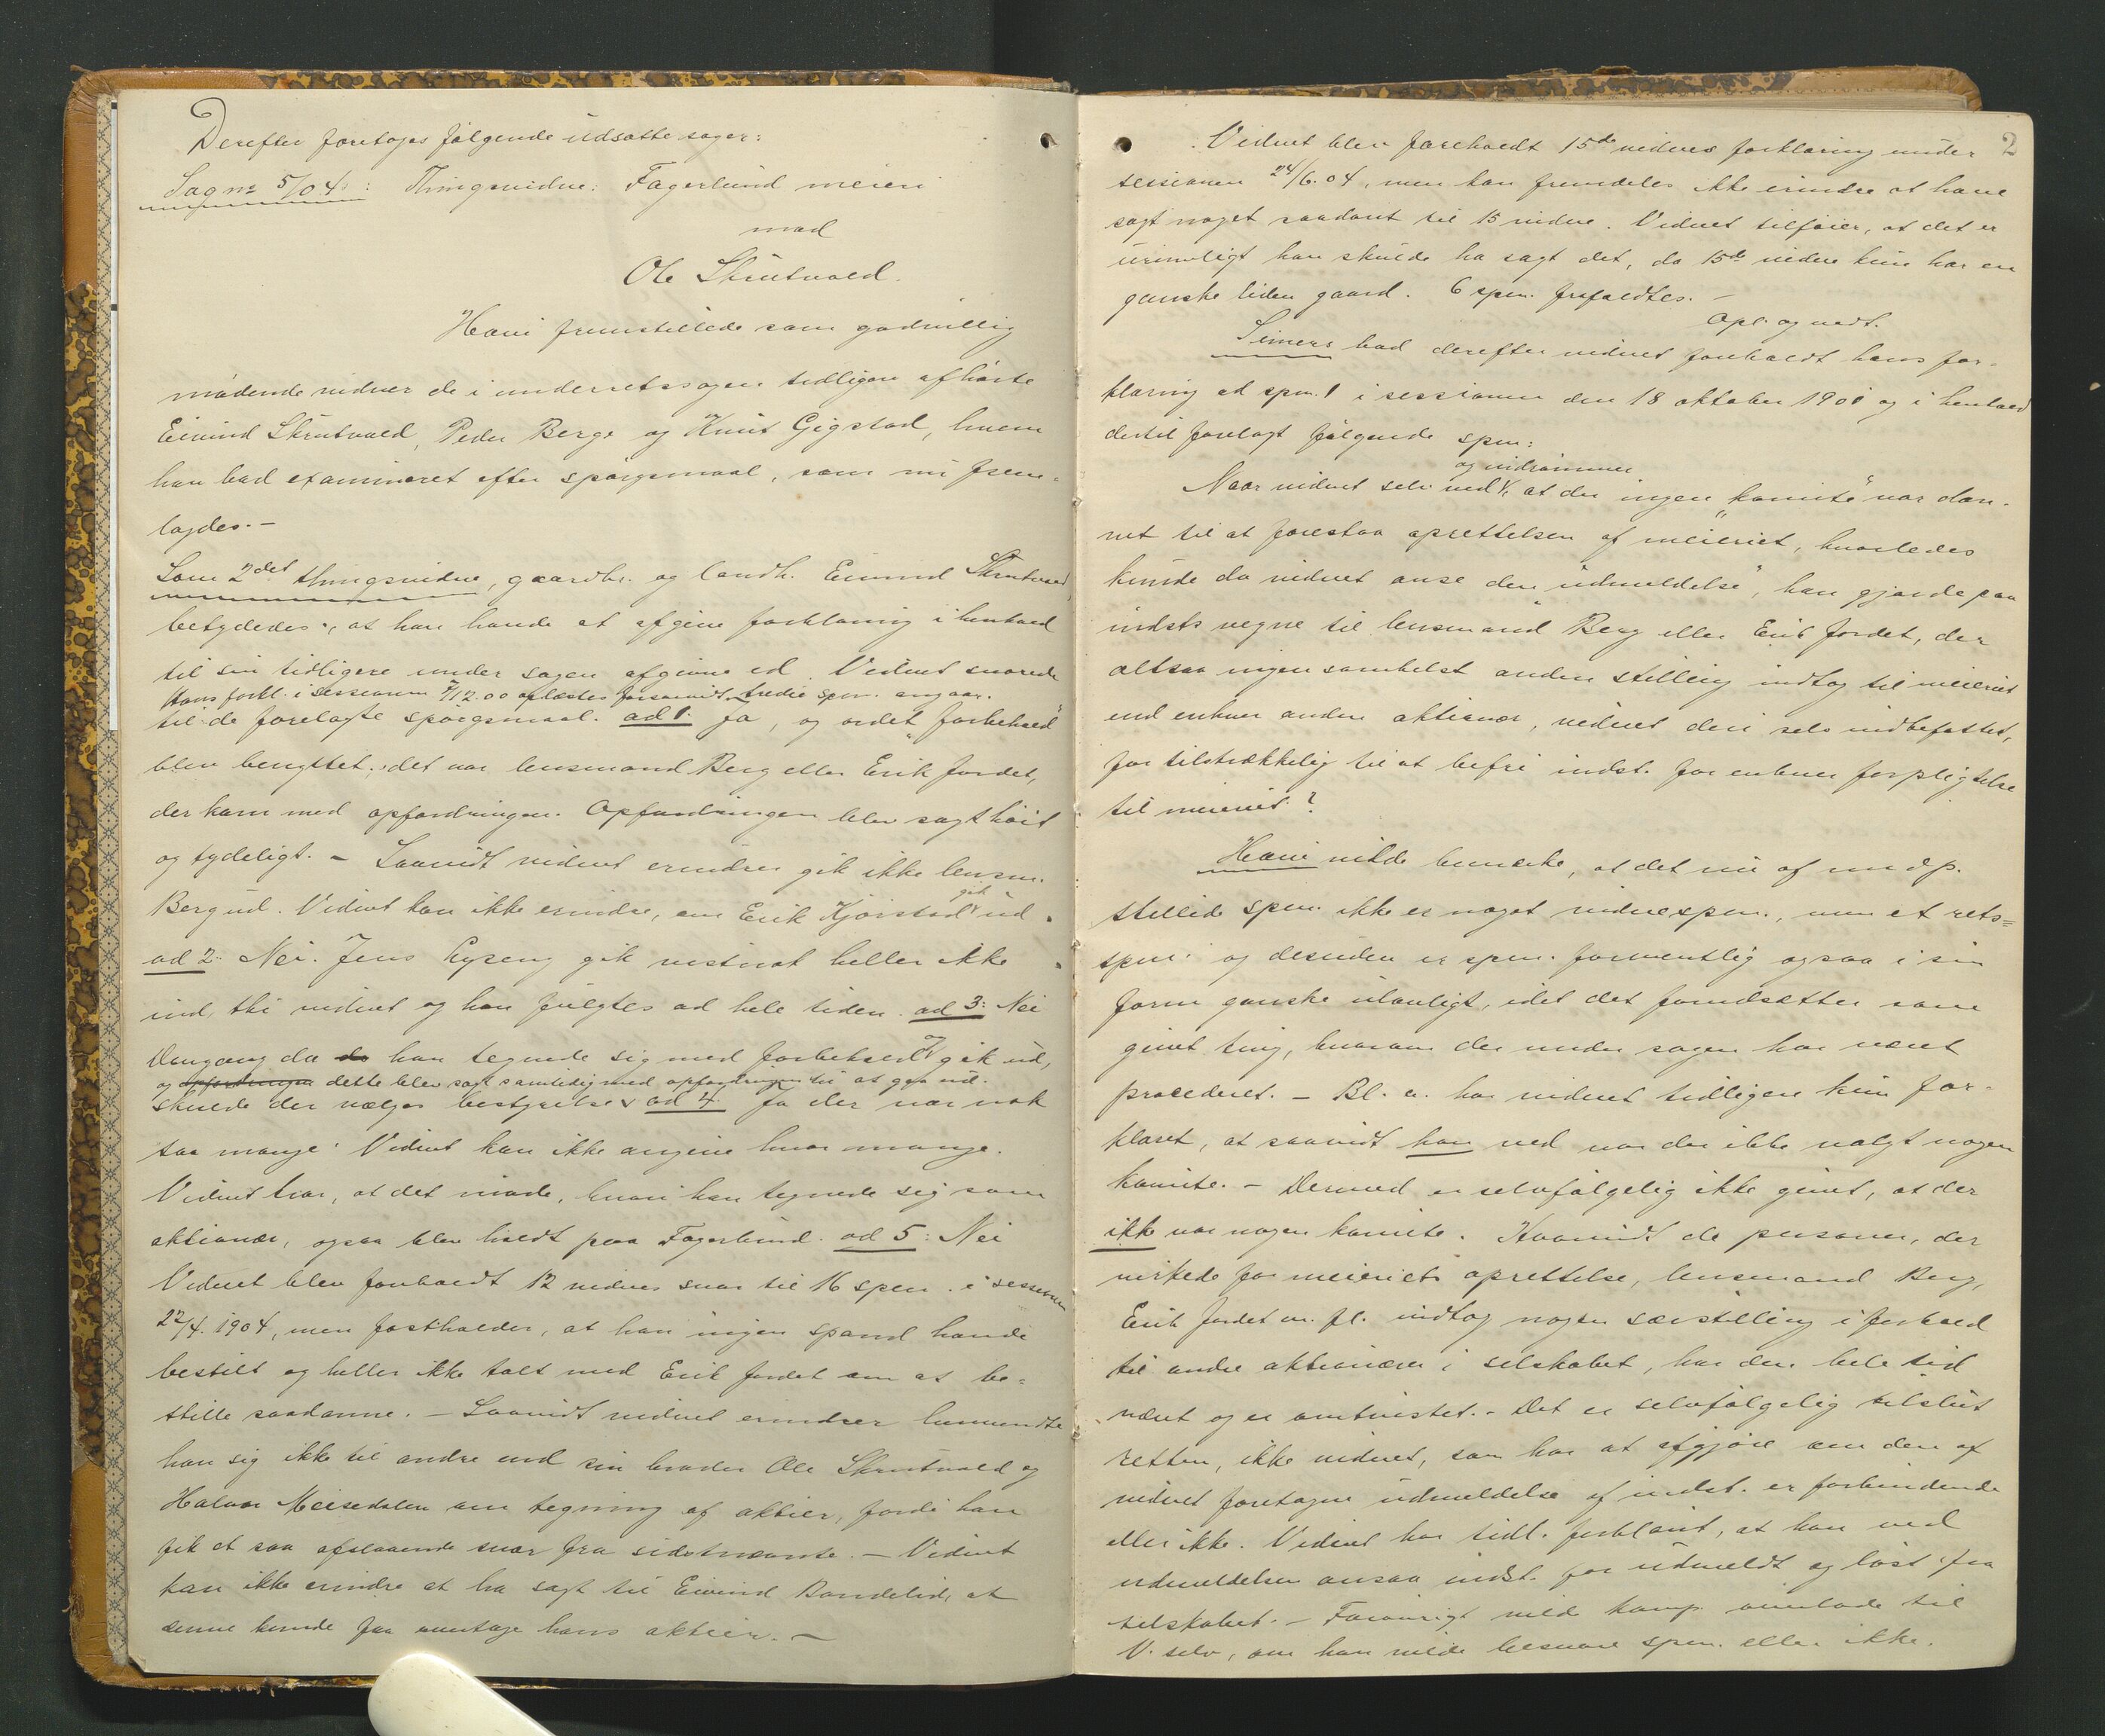 Derefter foretoges følgende udsatte sager:
Sag no 5/04: Thingsvidne: Fagerlund meieri
mod
Ole Skrutvold.
Havi fremstillede som godvillig
mødende vidner de i underretssagen tidligere afhørte
Eivind Skrutvold, Peder Berge og Knut Gigstad, hvem
han bad examineret efter spørgsmaal, som nu frem-
lagdes. -
Som 2det thingsvidne, gaardbr. og landh. Eivind Skrutvold,
betydedes, at han havde at afgive forklaring i henhold
til sin tidligere under sagen afgivne ed. Vidnet svarede
Hans forkl. i sessionen 7/12.00 oplæstes forsaavidt tredie spm. angaar.
til de forelagte spørgsmaal. ad 1. Ja, og ordet "forbehold"
blev benyttet; det var lensmand Berg eller Erik Jordet,
der kom med opfordringen. Opfordringen blev sagt høit
og tydeligt. - Saavidt vidnet erindrer gik ikke lensm.
Berg ud. Vidnet kan ikke erindre, om Erik Kjørstad gik ud.
ad 2: Nei. Jens Lyseng gik vistnok heller ikke
ind, thi vidnet og han fulgtes ad hele tiden. ad 3: Nei
Dengang da da han tegnede sig med forbehold gik ud,
og opfordringen dette blev sagt samtidig med opfordringen til at gaa ud.
skulde der vælges bestyrelse ad 4. Ja der var nok
saa mange. Vidnet kan ikke angive hvor mange.
Vidnet tror, at det møde, hvori han tegnede sig som
aktionær, ogsaa blev holdt paa Fagerlund. ad 5: Nei
Vidnet blev foreholdt 12 vidnes svar til 16 spm. i sessionen
22/4. 1904, men fastholder, at han ingen spand havde
bestilt og heller ikke talt med Erik Jordet om at be-
stille saadanne. - Saavidt vidnet erindrer henvendte
han sig ikke til andre end sin broder Ole Skrutvold og
Halvor Meisedalen om tegning af aktier, fordi han
fik et saa afslaaende svar fra sidstnævnte. - Vidnet
kan ikke erindre at ha sagt til Eivind Bandelid, at
denne kunde faa overtage hans aktier. -
2
Vidnet blev foreholdt 15de vidnes forklaring under
sessionen 24/6.04, men kan fremdeles ikke erindre at have
sagt noget saadant til 15 vidne. Vidnet tilføier, at det er
urimeligt han skulde ha sagt det, da 15de vidne kun har en
ganske liden gaard. 6 spm. frafaldtes. -
Opl. og vedt.
Seimers bad derefter vidnet foreholdt hans for-
klaring ad spm. 1 i sessionen den 18 oktober 1901 og i henhold
dertil forelagt følgende spm:
og indrømmer
Naar vidnet selv ved, at der ingen "komite" var dan-
net til at forestaa oprettelsen af meieriet, hvorledes
kunde da vidnet anse den "udmeldelse", han gjorde paa
indsts vegne til lensmand Berg eller Erik Jordet, der
altsaa ingensomhelst anden stilling indtog til meieriet
end enhver anden aktionær, vidnet deri selv indbefattet,
for tilstrækkelig til at befri indst. for enhver forpligtelse
til meieriet?
Havi vilde bemærke, at det nu af modp.
stillede spm. ikke er noget vidnespm., men et rets-
spm. og desuden er spm. formentlig ogsaa i sin
form ganske ulovligt, idet det forudsætter som
givet ting, hvorom der under sagen har været
procederet. - Bl. a. har vidnet tidligere kun for-
klaret, at saavidt han ved var der ikke valgt nogen
komite. - Dermed er selvfølgelig ikke givet, at der
ikke var nogen komite. Hvorvidt de personer, der
virkede for meieriets oprettelse, lensmand Berg,
Erik Jordet m. fl. indtog nogen særstilling i forhold
til andre aktionærer i selskabet, har den hele tid
været og er omtvistet. - Det er selvfølgelig tilslut
retten, ikke vidnet, som har at afgjøre om den af
vidnet foretagne udmeldelse af indst. er forbindende
eller ikke. Vidnet har tidl. forklaret, at han ved
udmeldelsen ansaa indst. for udmeldt og løst fra
selskabet. - Forøvrigt vilde komp. overlade til
V. selv, om han vilde besvare spm. eller ikke.